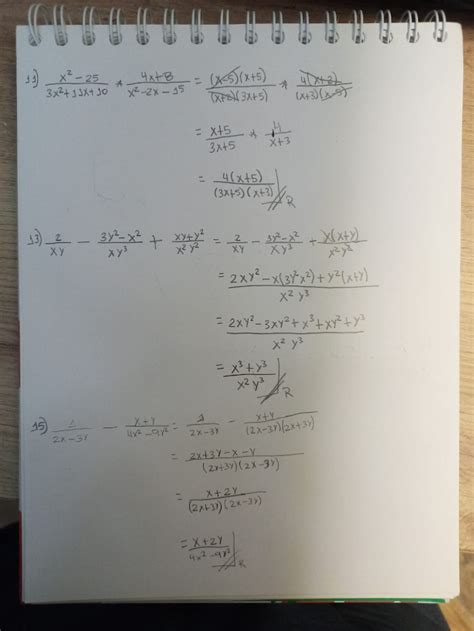 11) \frac{x²-25}{3x²+11x+10} * \frac{4x+8}{x²-2x-15} = \frac{(x-5)(x+5)}{(x+2)(3x+5)} * \frac{4(x+2)}{(x+3)(x-5)}
= \frac{x+5}{3x+5} * \frac{4}{x+3}
= \frac{4(x+5)}{(3x+5)(x+3)} R
13) \frac{2}{xy} - \frac{3y²-x²}{xy³} + \frac{xy+y²}{x²y²} = \frac{2}{xy} - \frac{3y²-x²}{xy³} + \frac{y(x+y)}{x²y²}
= \frac{2xy²-x(3y²x²)+y²(x+y)}{x²y³}
= \frac{2xy²-3xy²+x³+xy²+y³}{x²y³}
= \frac{x³+y³}{x²y³} R
15) \frac{1}{2x-3y} - \frac{x+y}{4x²-9y²} = \frac{1}{2x-3y} - \frac{x+y}{(2x-3y)(2x+3y)}
= \frac{2x+3y-x-y}{(2x+3y)(2x-3y)}
= \frac{x+2y}{(2x+3y)(2x-3y)}
= \frac{x+2y}{4x²-9y²} R